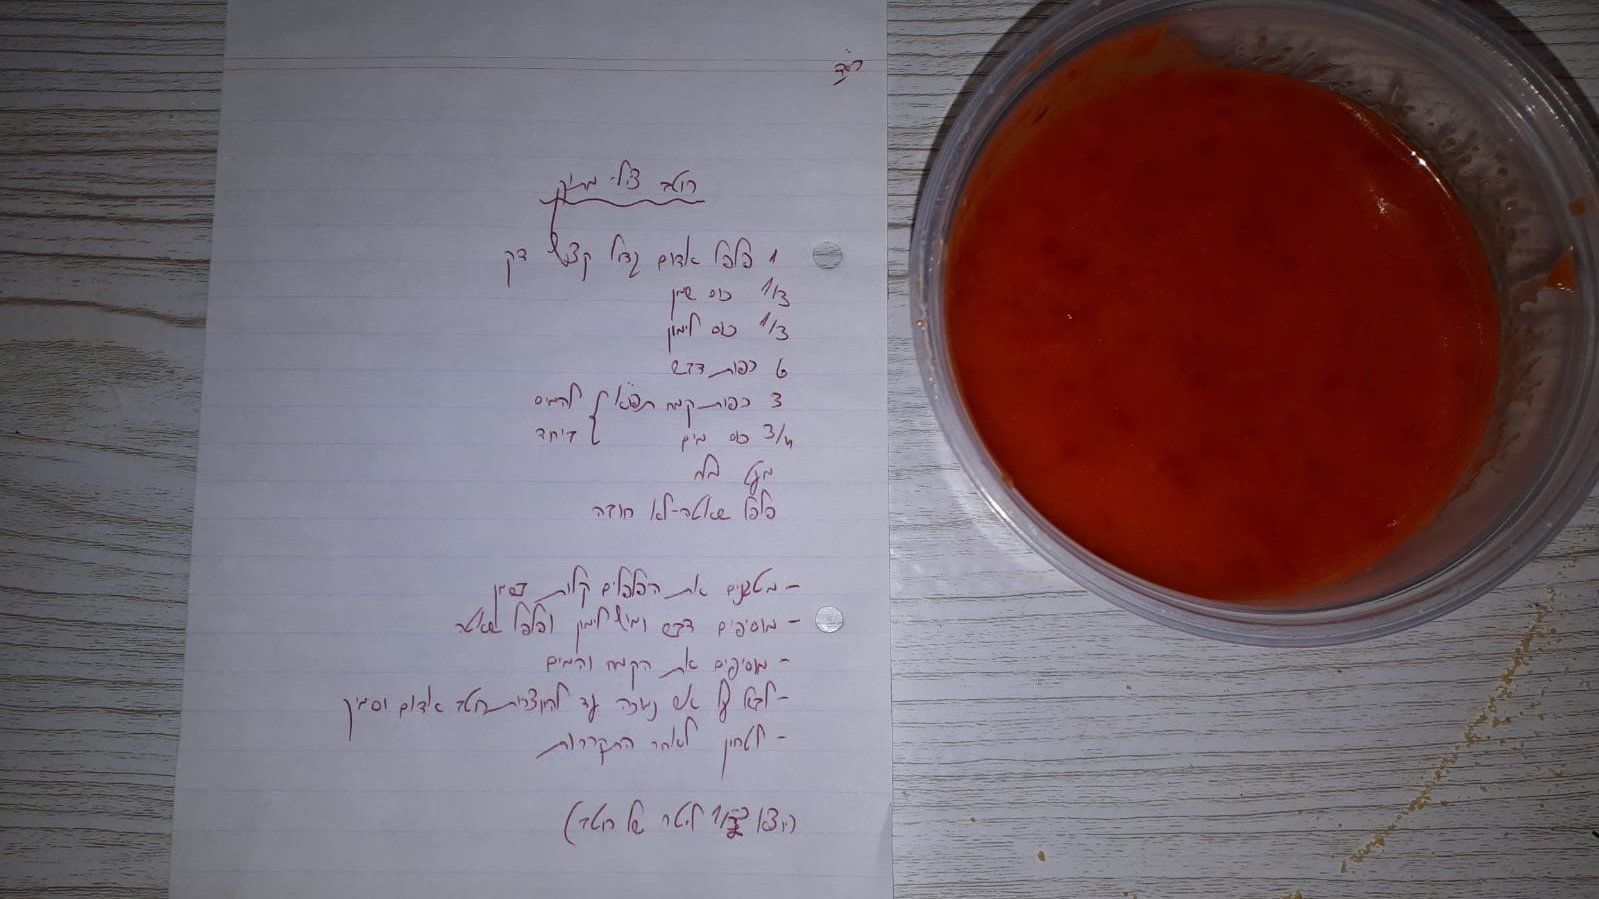 בסד
רוטב צ'ילי מתוק
1 פלפל אדום גדול קצוץ דק
1/3 כוס שמן
1/3 כוס לימון
6 כפות דבש
3 כפות קמח תפו"א } להמיס
3/4 כוס מים } ביחד
מעט מלח
פלפל שאטה-לא חובה
- מטגנים את הפלפלים קלות בשמן
- מוסיפים דבש ומיץ לימון ופלפל שאטה
- מוסיפים את הקמח והמים
- לבשל על אש נמוכה עד להיווצרות רוטב אדום וסמיך
- לטחון לאחר התקררות
(יוצא ליטר של רוטב)